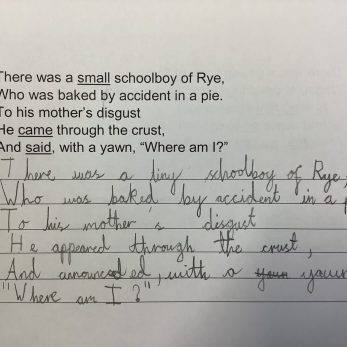 There was a small schoolboy of Rye,
Who was baked by accident in a pie.
To his mother's disgust
He came through the crust,
And said, with a yawn, “Where am I?”
There was a tiny schoolboy of Rye,
Who was baked by accident in a
To his mother's disgust
He appeared through the crust,
And announced, with a yawn
"Where am I?"